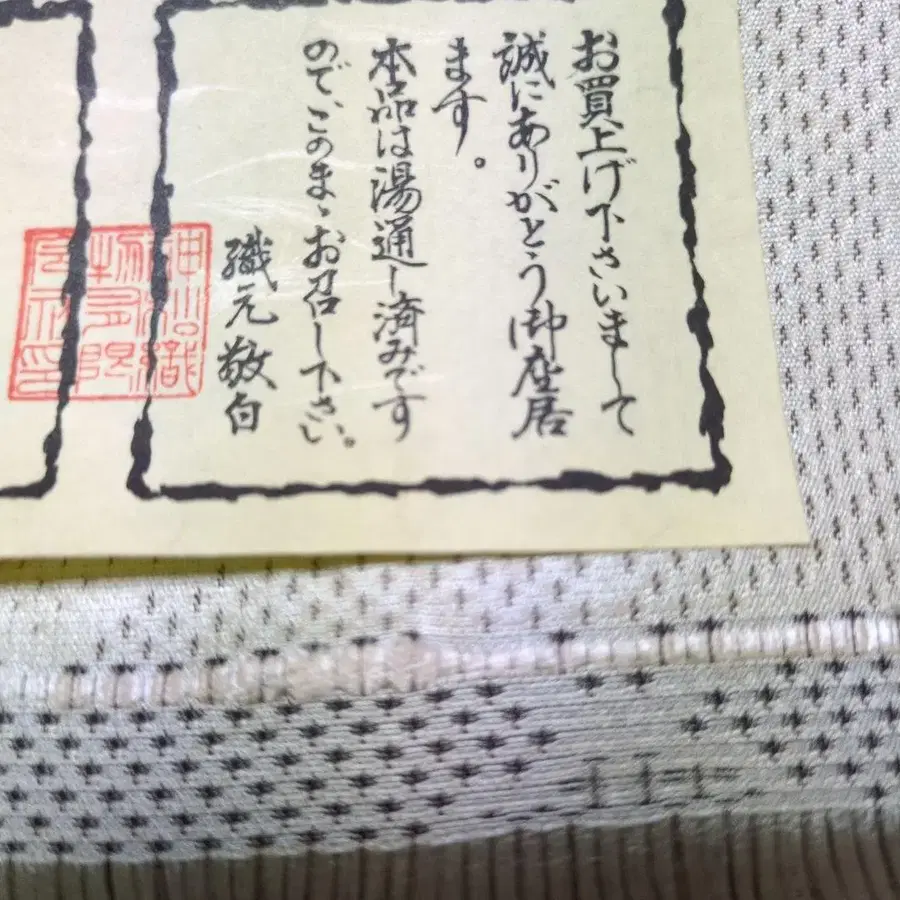 お買上げ下さいまして
誠にありがとう御座居
ます。
本品は湯通し済みです
のでこのまゝお召し下さい。
織元敬白